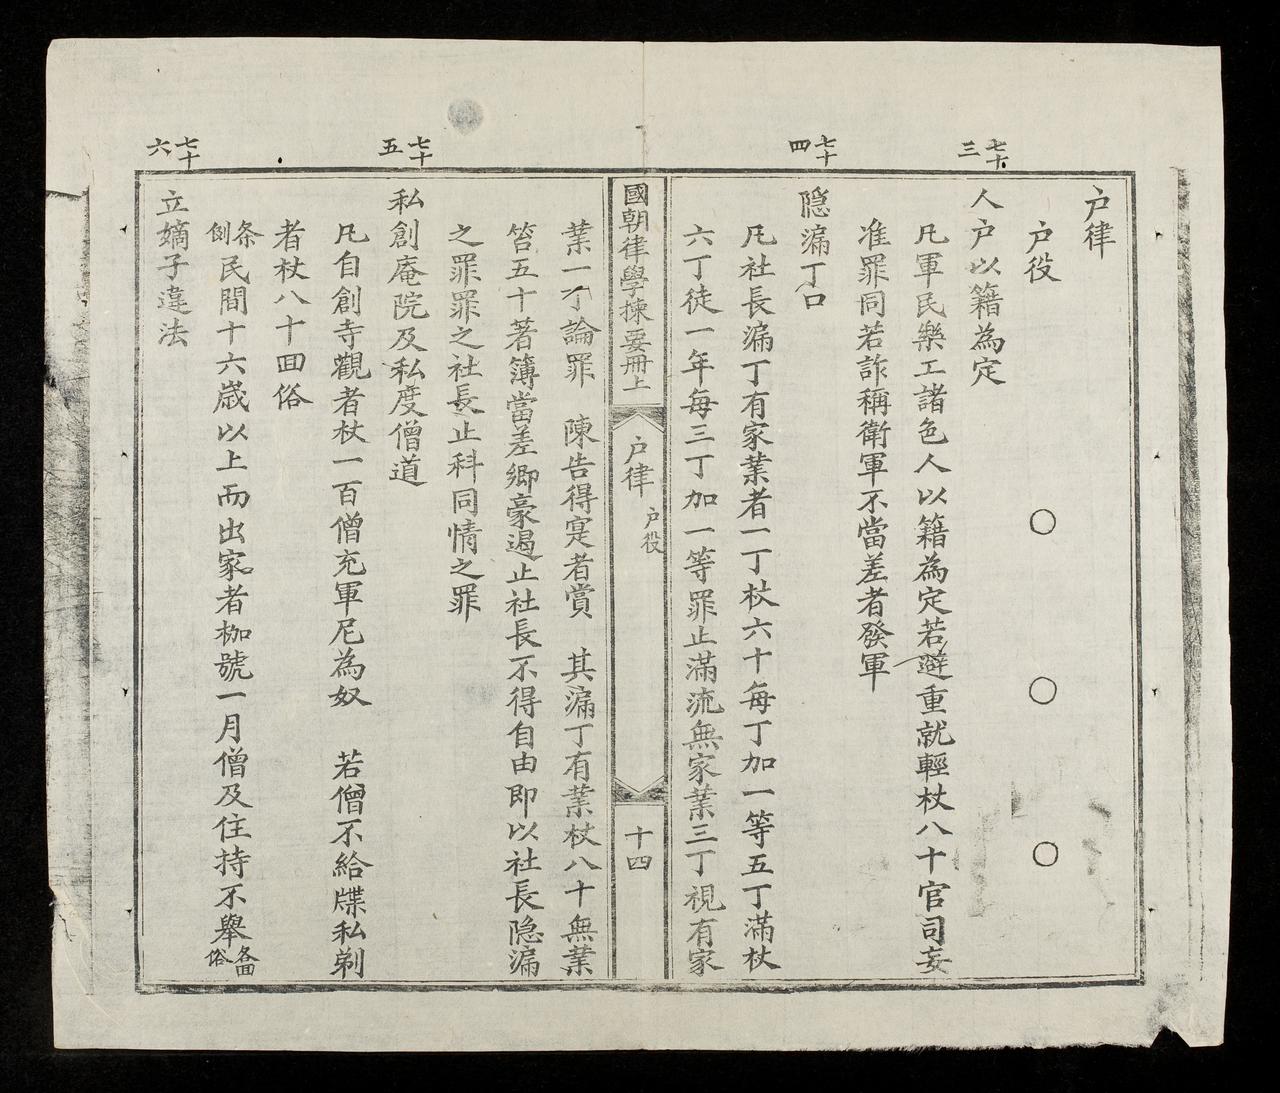 户律
户役
七十三
人户以籍為定
凡軍民樂工諸色人以籍為定若避重就輕杖八十官司妄
准罪同若詐稱衛軍不當差者發軍
七十四
隐漏丁口
凡社長漏丁有家業者一丁杖六十每丁加一等五丁滿杖
六丁徒一年每三丁加一等罪止滿流無家業三丁視有家
國朝律學揀要冊上
户律 户役
十四
業一丁論罪 陳告得寔者賞 其漏丁有業杖八十無業
笞五十著簿當差鄉豪遏止社長不得自由即以社長隐漏
之罪罪之社長止科同情之罪
七十五
私創庵院及私度僧道
凡自創寺觀者杖一百僧充軍尼為奴 若僧不給牒私剃
者杖八十回俗
条例民間十六歲以上而出家者枷號一月僧及住持不舉各回俗
七十六
立嫡子違法